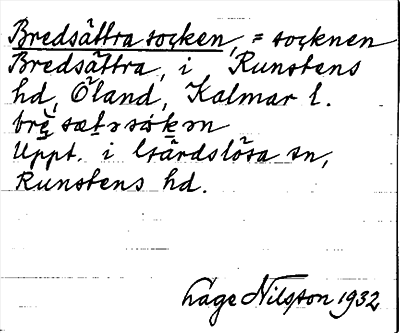 Bredsättra socken, = socknen
Bredsättra, i Runstens
hd, Öland, Kalmar l.
Uppt. i Gärdslösa sn,
Runstens hd.
Lage Nilsson 1932